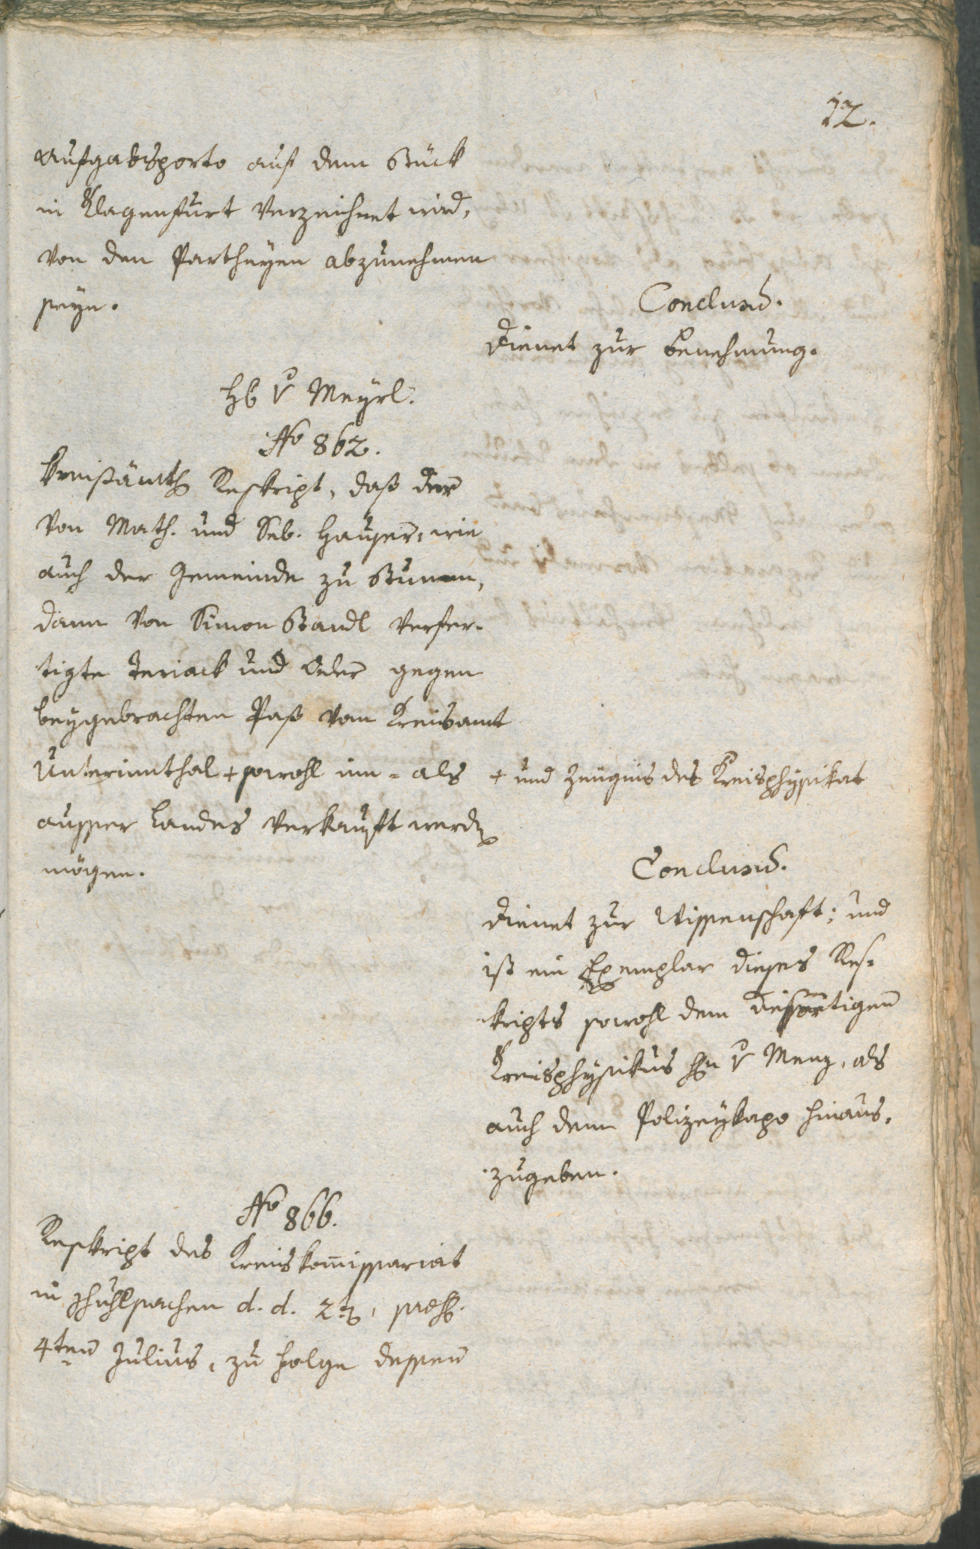 12.
Aufgabsporto auf dem Stück
in Klagenfurt verzeichnet wird,
von den Partheyen abzunehmen
seye.
Conclus.
Dienet zur Benehmung.
Hb v Meyrl.
No 862.
Kreisämtl Reskript, daß der
von Math. und Seb. Hauser, wie
auch der Gemeinde zu Stumm,
dann von Simon Staudl verfer-
tigte Teriack und Oeler gegen
beygebrachten Paß vom Kreisamt
Unterinnthal + sowohl inn- als
+ und Zeugnis des Kreisphysikat
ausser Landes verkauft werden
mögen.
Conclus.
Dienet zur Wissenschaft; und
ist ein Exemplar dieses Res-
kripts sowohl dem diesortigen
Kreisphysikus Hn v Menz, als
auch dem Polizeykapo hinaus-
zugeben.
No 866.
Reskript des Kreiskom̅issariat
in d. d. 2t, praes.
4ten Julius, zu Folge dessen